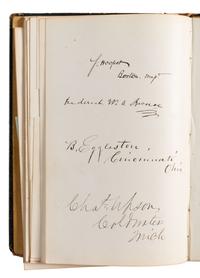 Hooper
Boston. Mass
Frederick
B. Eggleston,
Cincinnati
Ohio
Chas Upson,
Coldwater
Mich